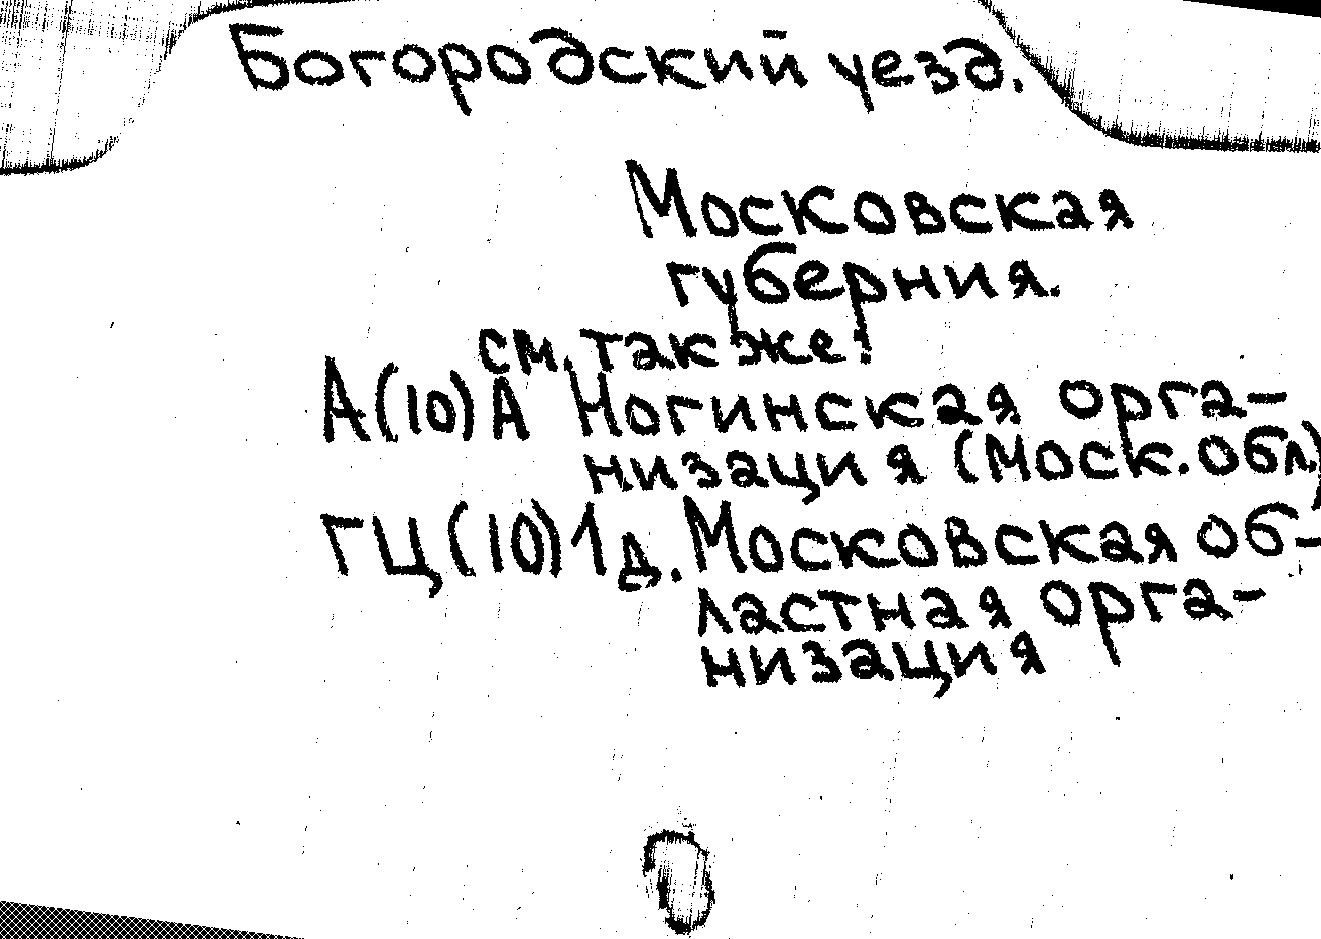 Богородский уезд.
Московская
губерния.
см. также:
А(10)А Ногинская орга-
низация (Моск. обл.)
ГЦ(10)1д. Московская об-
ластная орга-
низация